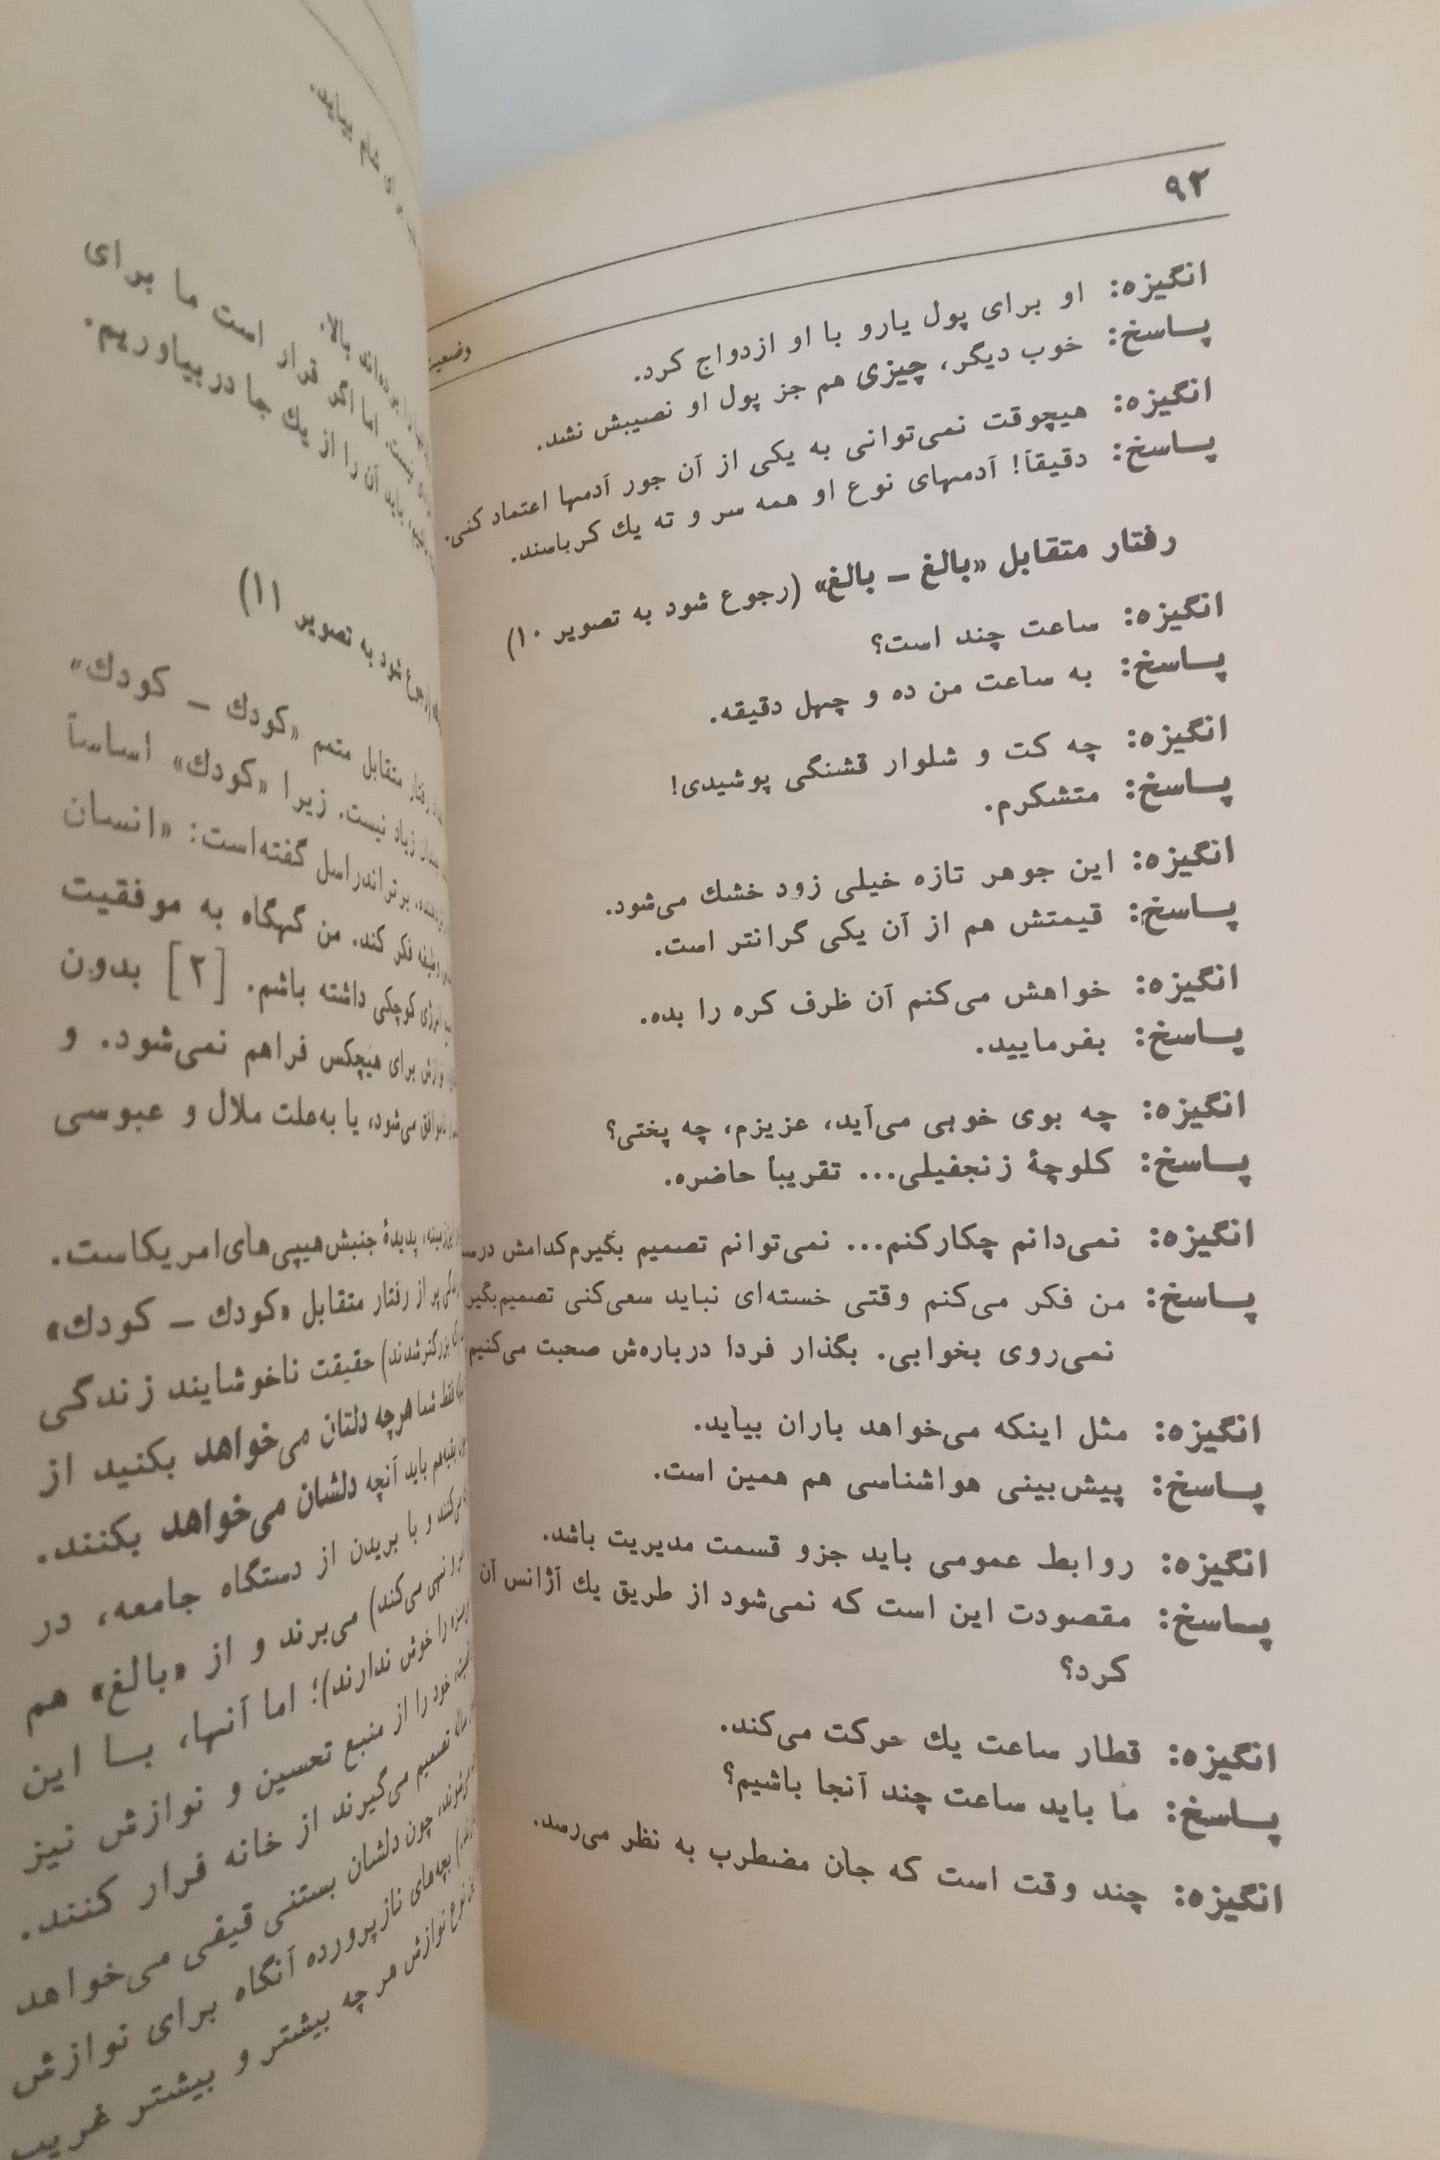 ۹۲
انگیزه: او برای پول یارو با او ازدواج کرد.
پاسخ: خوب دیگر، چیزی هم جز پول او نصیبش نشد.
انگیزه: هیچوقت نمی‌توانی به یکی از آن جور آدمها اعتماد کنی.
پاسخ: دقیقاً! آدمهای نوع او همه سر و ته یك کرباسند.
رفتار متقابل «بالغ – بالغ» (رجوع شود به تصویر ۱۰)
انگیزه: ساعت چند است؟
پاسخ: به ساعت من ده و چهل دقیقه.
انگیزه: چه کت و شلوار قشنگی پوشیدی!
پاسخ: متشکرم.
انگیزه: این جوهر تازه خیلی زود خشك می‌شود.
پاسخ: قیمتش هم از آن یکی گرانتر است.
انگیزه: خواهش می‌کنم آن ظرف کره را بده.
پاسخ: بفرمایید.
انگیزه: چه بوی خوبی می‌آید، عزیزم، چه پختی؟
پاسخ: کلوچهٔ زنجفیلی... تقریباً حاضره.
انگیزه: نمی‌دانم چکارکنم... نمی‌توانم تصمیم بگیرم کدامش
پاسخ: من فکر می‌کنم وقتی خسته‌ای نباید سعی‌کنی
نمی‌روی بخوابی. بگذار فردا درباره‌ش صحبت می‌کنیم
انگیزه: مثل اینکه می‌خواهد باران بیاید.
پاسخ: پیش‌بینی هواشناسی هم همین است.
انگیزه: روابط عمومی باید جزو قسمت مدیریت باشد.
پاسخ: مقصودت این است که نمی‌شود از طریق یك آژانس آن
کرد؟
انگیزه: قطار ساعت یك حرکت می‌کند.
پاسخ: ما باید ساعت چند آنجا باشیم؟
انگیزه: چند وقت است که جان مضطرب به نظر می‌رسد.
شام بیاید.
بالا.
اما اگر قرار است ما برای
باید آن را از یك جا دربیاوریم.
شود به تصویر ۱۱)
رفتار متقابل متمم «کودك – کودك»
زیاد نیست. زیرا «کودك» اساساً
برتراندراسل گفته‌است: «انسان
وظیفه فکر کند. من گهگاه به موفقیت
انرژی کوچکی داشته باشم. [۲] بدون
برای هیچکس فراهم نمی‌شود. و
می‌شود، یا به‌علت ملال و عبوسی
پدیدهٔ جنبش‌هیپی‌های‌امریکاست.
پر از رفتار متقابل «کودك – کودك»
بزرگترشدند) حقیقت ناخوشایند زندگی
فقط شما هرچه دلتان می‌خواهد بکنید از
باید آنچه دلشان می‌خواهد بکنند.
می‌کنند و با بریدن از دستگاه جامعه، در
نهی می‌کند) می‌برند و از «بالغ» هم
را خوش ندارند)؛ اما آنها، بـا این
خود را از منبع تحسین و نوازش نیز
تصمیم می‌گیرند از خانه فرار کنند.
چون دلشان بستنی قیفی می‌خواهد
بچه‌های نازپرورده آنگاه برای نوازش
نوع نوازش هر چه بیشتر و بیشتر غریب